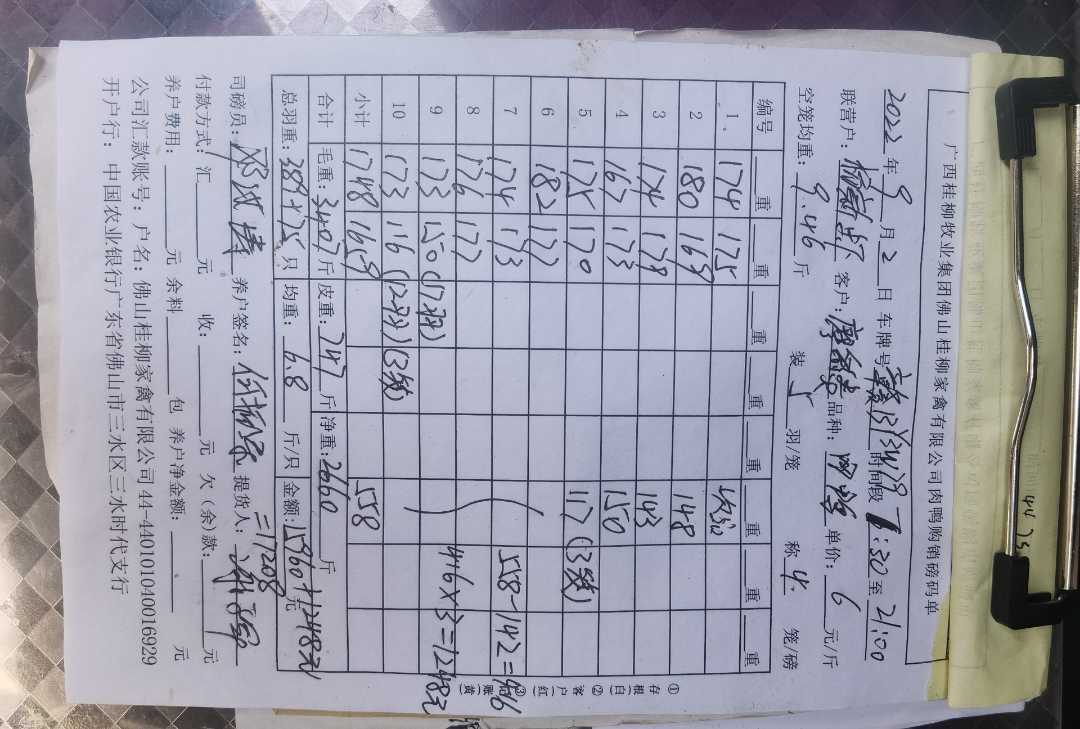 广西桂柳牧业集团佛山桂柳家禽有限公司肉鸭购销磅码单
2022年9月2日 车牌号 时间段 7:30至21:00
联营户: 客户: 品种: 单价:6元/斤
空笼均重:9.46斤 装5羽/笼 称4笼/磅
编号 重 重 重 重 重 重 重 重
1、 174 175
2 180 169 148
3 174 179 143
4 167 173 150
5 175 170 117(3笼)
6 182 177
7 174 193 558-142=416
8 176 177
9 173 150(17羽) 416×3=1248元
10 173 116(12羽)(3笼)
小计 1748 1659 558
合计 毛重:3407斤 皮重:747斤 净重:2660斤
总羽重:389+75只 均重:6.8斤/只 金额:15960+1248元
=17208
司磅员: 养户签名: 提货人:
付款方式:汇 元 收: 元 欠(余)款: 元
养户费用: 元 余料 包 养户净金额: 元
公司汇款账号:户名:佛山桂柳家禽有限公司44-440101040016929
开户行:中国农业银行广东省佛山市三水区三水时代支行
①存根(白)
②客户(红)
③账(黄)